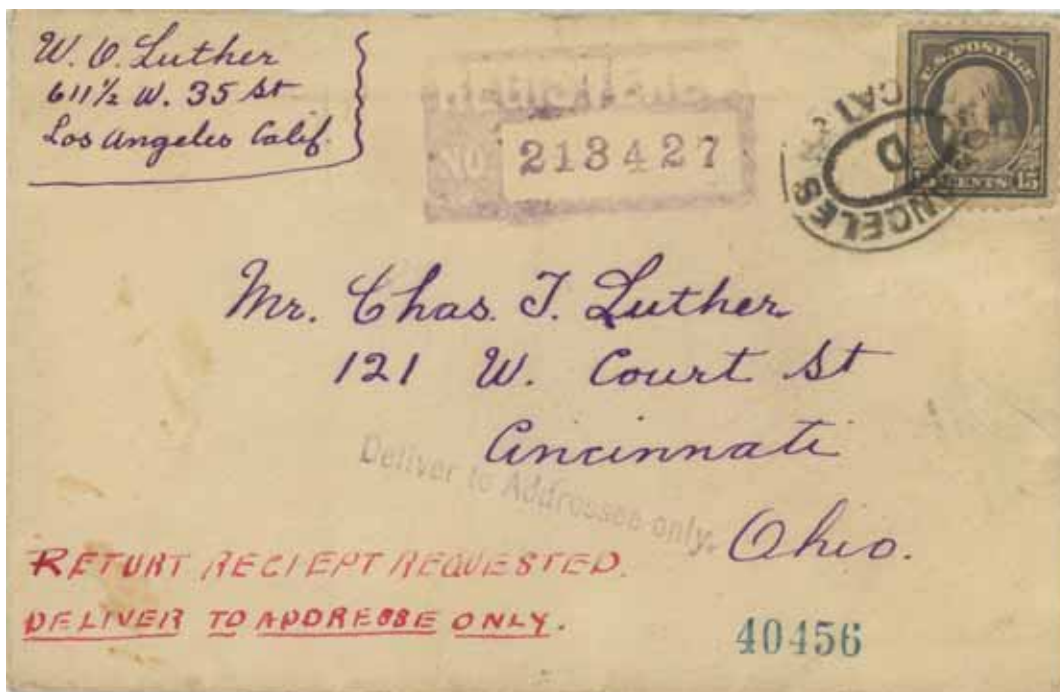 W. O. Luther
611½ W. 35 St
Los Angeles Calif.
NO.
213427
U.S. POSTAGE
CENTS 15
ANGELES
CAL
D
Mr. Chas. T. Luther
121 W. Court St
Cincinnati
Ohio.
Deliver to Addressee only.
RETURT RECIEPT REQUESTED.
DELIVER TO ADDRESSE ONLY.
40456